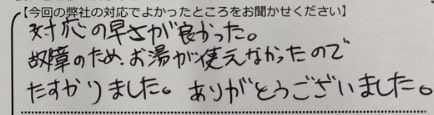 【今回の弊社の対応でよかったところをお聞かせください】
対応の早さが良かった。
故障のため、お湯が使えなかったので
たすかりました。ありがとうございました。